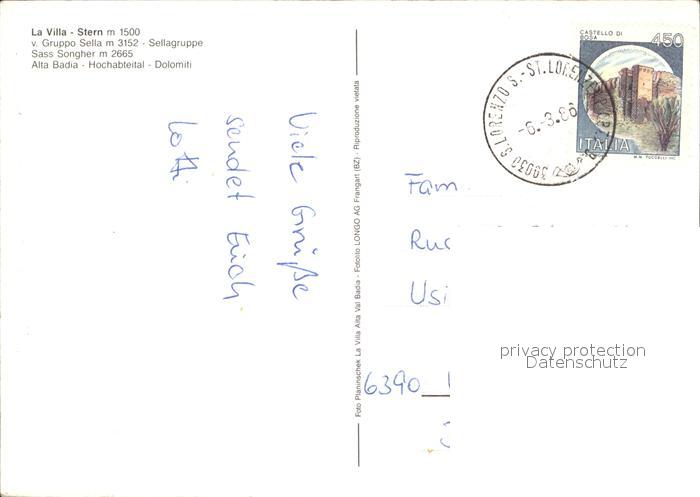 La Villa - Stern m 1500
v. Gruppo Sella m 3152 - Sellagruppe
Sass Songher m 2665
Alta Badia - Hochabteital - Dolomiti
Viele Grüße
sendet Euch
Lotti
Foto Planinschek La Villa Alta Val Badia - Fotolito LONGO AG Frangart (BZ) - Riproduzione vietata
CASTELLO DI
BOSA
450
ITALIA
39030 S.LORENZO S.-ST.LORENZEN
-6.-3.86
Fam
Usi
6390
privacy protection
Datenschutz